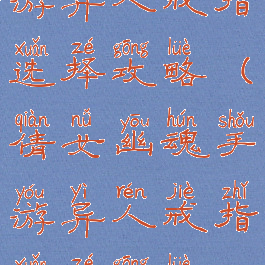 游异人戒指
xuǎn zé gōng lüè
选择攻略(
qiàn nǚ yōu hún shǒu
倩女幽魂手
yóu yì rén jiè zhǐ
游异人戒指
xuǎn zé gōng lüè